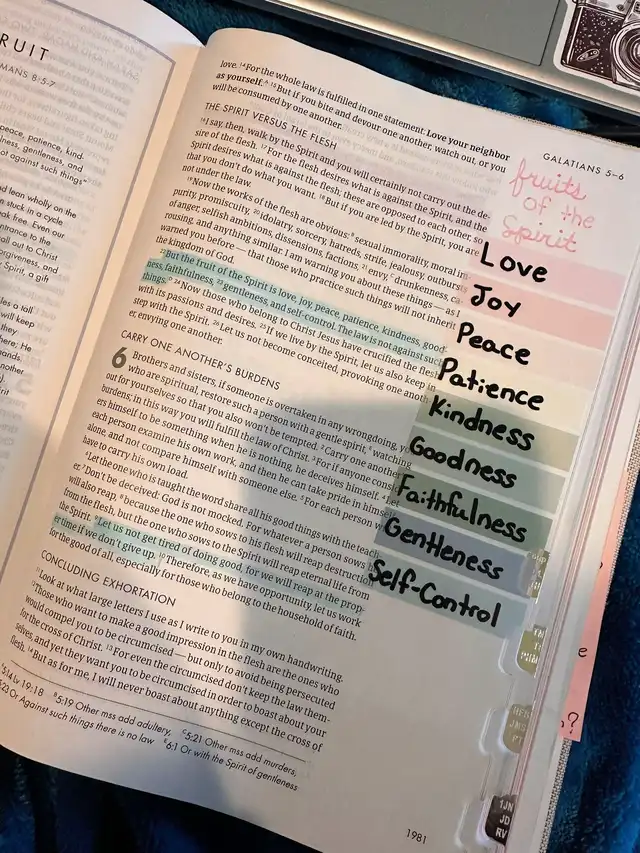 RUIT
MANS 8:5-7
peace, patience, kind-
lness, gentleness, and
ot against such things"
d lean wholly on the
n stuck in a cycle
ak free. Even our
ntrance to the
all out to Christ
orgiveness, and
r Spirit, a gift
des a tall
will keep
they
here; He
ands.
nother
rit
GALATIANS 5–6
love. 14 For the whole law is fulfilled in one statement: Love your neighbor
as yourself. 15 But if you bite and devour one another, watch out, or you
will be consumed by one another.
THE SPIRIT VERSUS THE FLESH
16 I say, then, walk by the Spirit and you will certainly not carry out the de-
sire of the flesh. 17 For the flesh desires what is against the Spirit, and the
Spirit desires what is against the flesh; these are opposed to each other, so
that you don't do what you want. 18 But if you are led by the Spirit, you are
not under the law.
19 Now the works of the flesh are obvious: sexual immorality, moral im-
purity, promiscuity, 20 idolatry, sorcery, hatreds, strife, jealousy, outbursts
of anger, selfish ambitions, dissensions, factions, 21 envy, drunkenness, ca-
rousing, and anything similar. I am warning you about these things — as I
warned you before — that those who practice such things will not inherit
the kingdom of God.
22 But the fruit of the Spirit is love, joy, peace, patience, kindness, good-
ness, faithfulness, 23 gentleness, and self-control. The law is not against such
things. 24 Now those who belong to Christ Jesus have crucified the flesh
with its passions and desires. 25 If we live by the Spirit, let us also keep in
step with the Spirit. 26 Let us not become conceited, provoking one anoth
er, envying one another.
CARRY ONE ANOTHER'S BURDENS
6 Brothers and sisters, if someone is overtaken in any wrongdoing, yo
who are spiritual, restore such a person with a gentle spirit, watching
out for yourselves so that you also won't be tempted. 2 Carry one another
burdens; in this way you will fulfill the law of Christ. 3 For if anyone cons
ers himself to be something when he is nothing, he deceives himself. 4 Let
each person examine his own work, and then he can take pride in himself
alone, and not compare himself with someone else. 5 For each person w
have to carry his own load.
6 Let the one who is taught the word share all his good things with the teach
er. 7 Don't be deceived: God is not mocked. For whatever a person sows h
will also reap, 8 because the one who sows to his flesh will reap destruction
from the flesh, but the one who sows to the Spirit will reap eternal life from
the Spirit. 9 Let us not get tired of doing good, for we will reap at the prop-
er time if we don't give up. 10 Therefore, as we have opportunity, let us work
for the good of all, especially for those who belong to the household of faith.
CONCLUDING EXHORTATION
11 Look at what large letters I use as I write to you in my own handwriting.
12 Those who want to make a good impression in the flesh are the ones who
would compel you to be circumcised — but only to avoid being persecuted
for the cross of Christ. 13 For even the circumcised don't keep the law them-
selves, and yet they want you to be circumcised in order to boast about your
flesh. 14 But as for me, I will never boast about anything except the cross of
5:14 Lv 19:18 5:19 Other mss add adultery, 5:21 Other mss add murders,
5:23 Or Against such things there is no law 6:1 Or with the Spirit of gentleness
1981
fruits
of the
Spirit
Love
Joy
Peace
Patience
Kindness
Goodness
Faithfulness
Gentleness
Self-Control
1JN
JD
RV
e
?